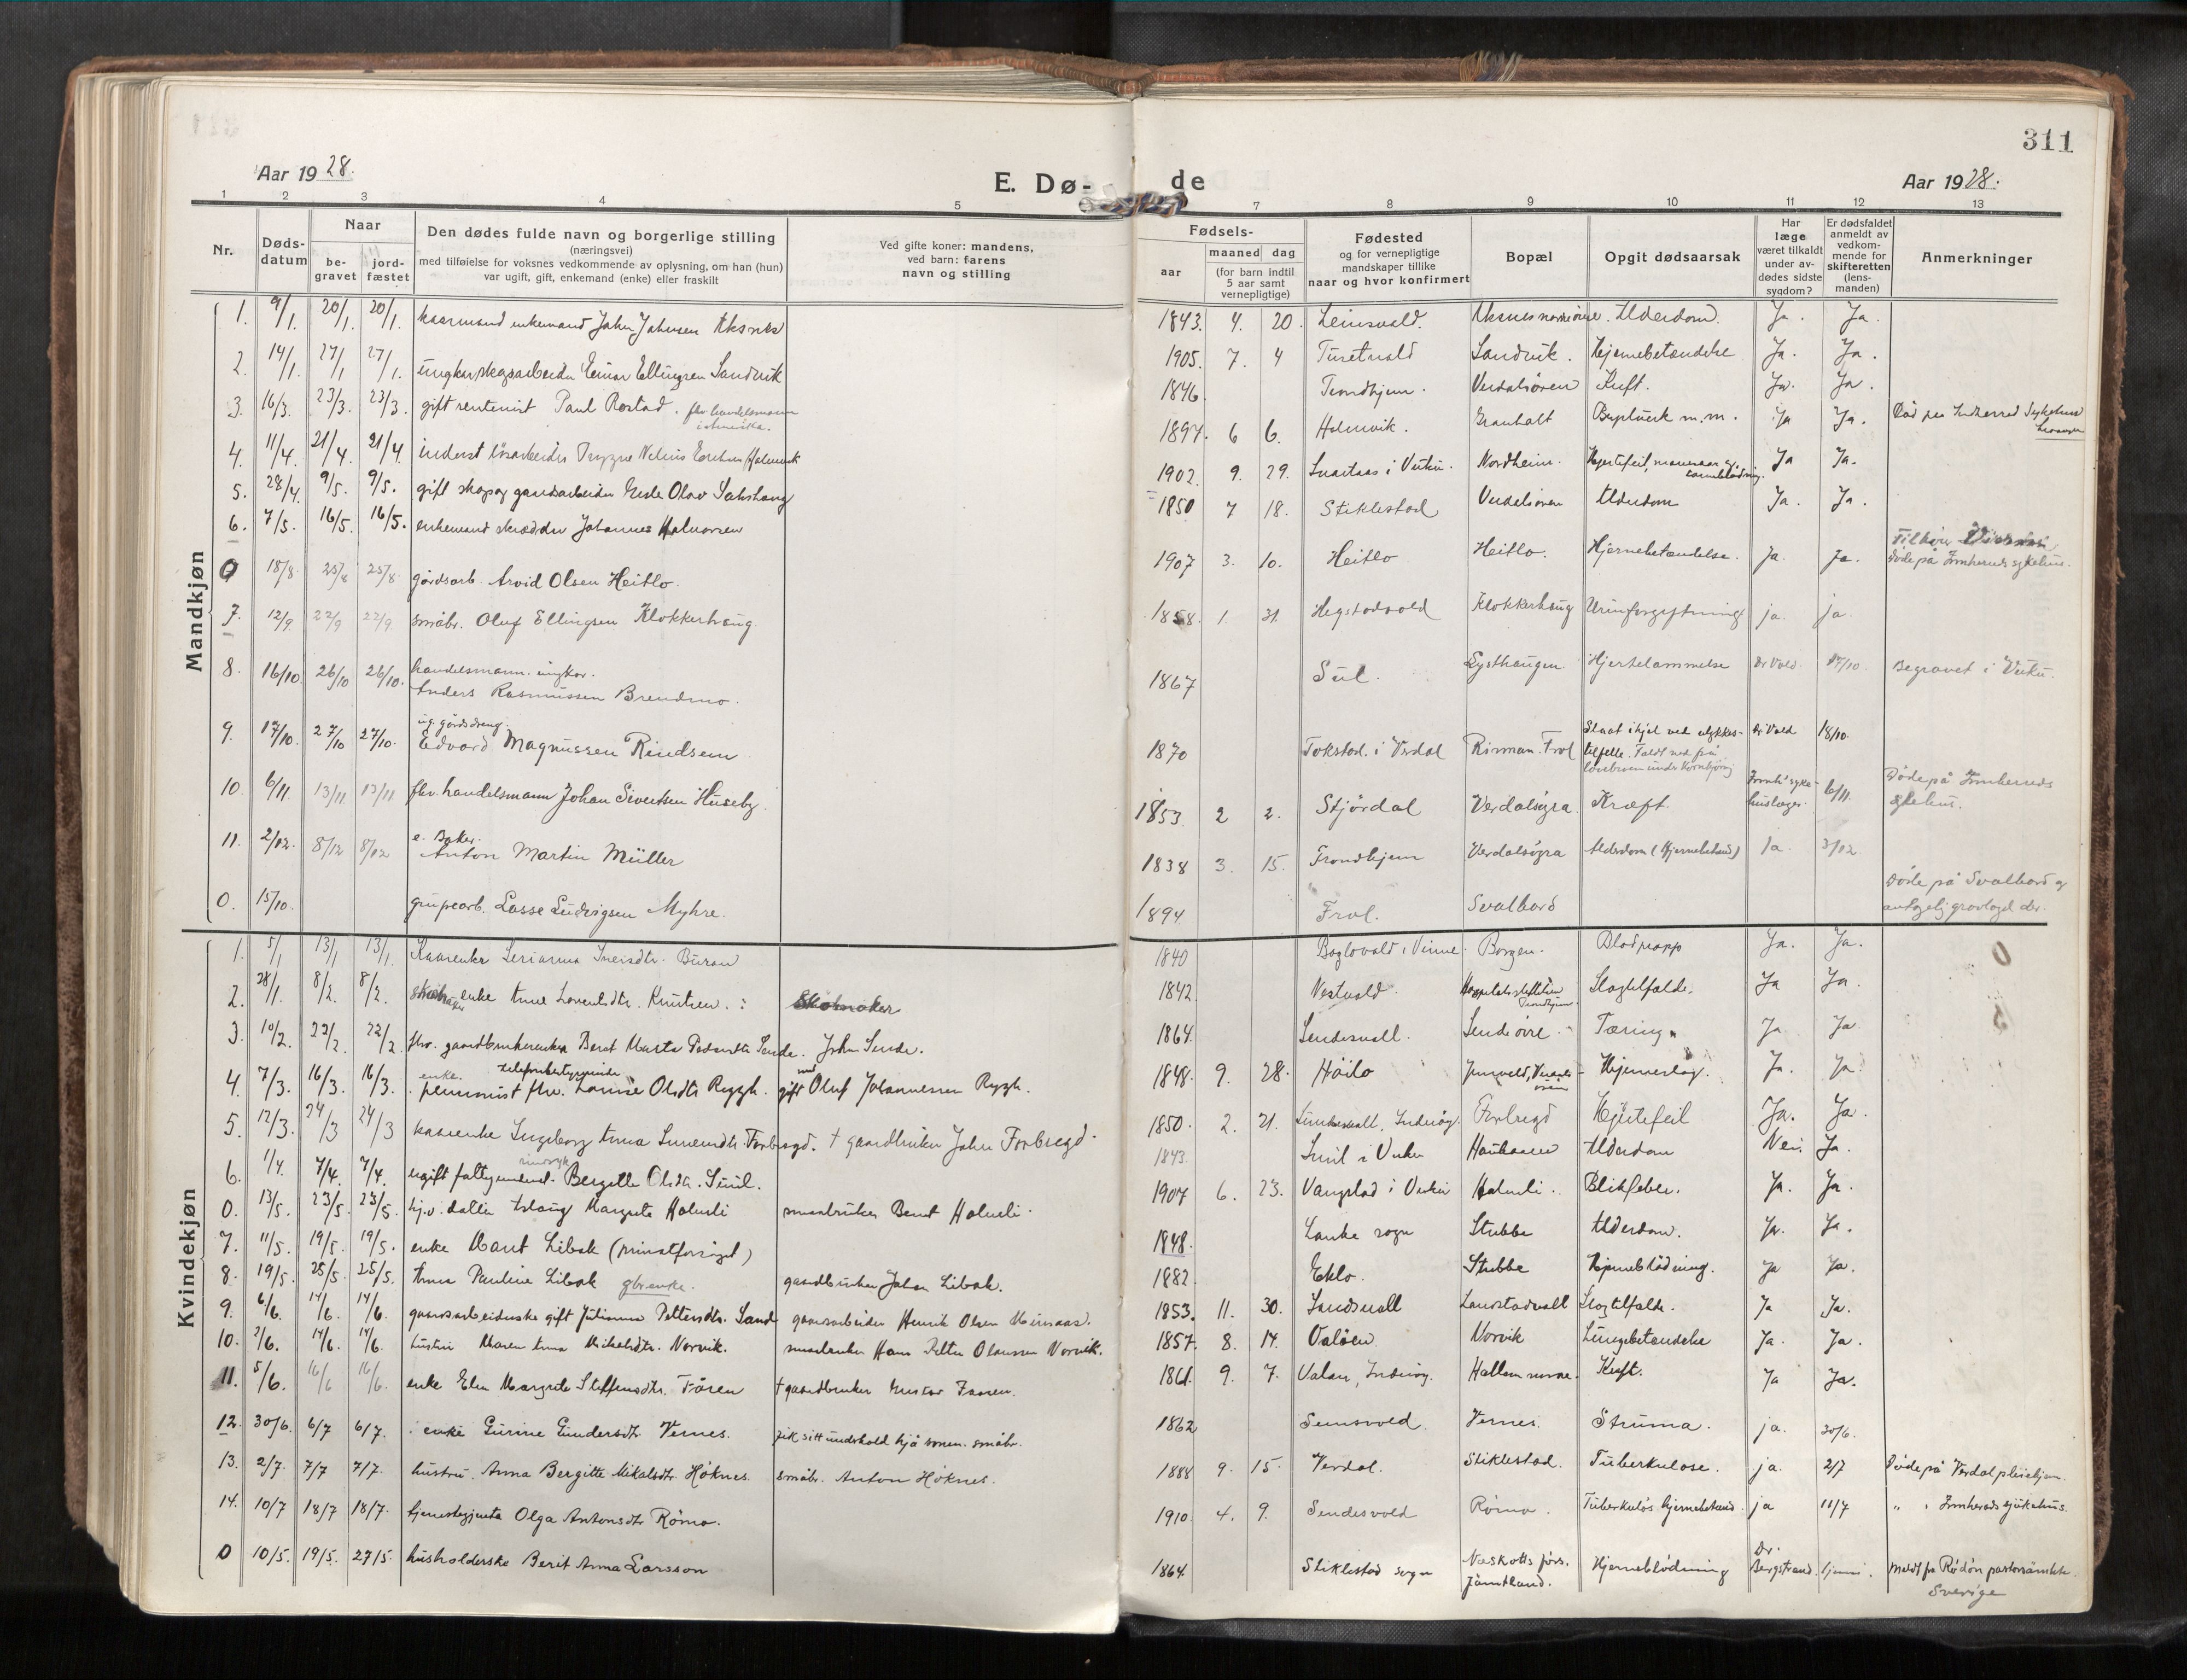 311
Aar 1928.
E. Dø-
de
Aar 1928.
1 2 3 4 5
7 8 9 10 11 12 13
Nr.
Døds-
datum
Naar
be-
gravet
jord-
fæstet
Den dødes fulde navn og borgerlige stilling
(næringsvei)
med tilføielse for voksnes vedkommende av oplysning, om han (hun)
var ugift, gift, enkemand (enke) eller fraskilt
Ved gifte koner: mandens,
ved barn: farens
navn og stilling
Fødsels-
aar
maaned dag
(for barn indtil
5 aar samt
vernepligtige)
Fødested
og for vernepligtige
mandskaper tillike
naar og hvor konfirmert
Bopæl
Opgit dødsaarsak
Har
læge
været tilkaldt
under av-
dødes sidste
sygdom?
Er dødsfaldet
anmeldt av
vedkom-
mende for
skifteretten
(lens-
manden)
Anmerkninger
Mandkjøn
1. 9/1. 20/1. 20/1. kaarmand enkemand John Johnsen Aksnes 1843. 4. 20. Leinsvald. Alderdom. Ja. Ja.
2. 14/1. 27/1 27/1. ungkar, skogsarbeider Einar Ellingsen Sandvik 1905. 7. 4 Sandvik. Hjernebetændelse Ja. Ja.
3. 16/3. 23/3. 23/3. gift rentenist Paul Rostad. fhv. handelsmann
i Amerika.
1846. Trondhjem. Verdalsøren Kreft. Ja. Ja.
4. 11/4. 21/4. 21/4. inderst løsarbeider Holmvik 1897. 6 6. Holmvik. Granhalt m.m. Ja Ja. Død paa Indherred Sykehus
5. 28/4. 9/5. 9/5. gift skog og gaardsarbeider Olav 1902. 9. 29. i Vuku. Nordheim. Hjertefeil, Ja Ja.
6. 7/5. 16/5. 16/5. enkemand skrædder Johannes Halvorsen 1850 7 18. Stiklestad Verdalsøren Alderdom Ja. Ja.
0 18/8. 25/8 25/8. gårdsarb. Arvid Olsen Heitlo. 1907 3. 10. Heitlo Heitlo. Hjernebetændelse. ja. ja. Tilhører
døde på Innherreds sykehus.
7. 12/9 22/9 22/9 småbr. Oluf Ellingsen Klokkerhaug 1858. 1. 31. Hegstadvold Klokkerhaug Urinforgiftning ja. ja.
8. 16/10. 26/10 26/10. handelsmann. ungkar.
Anders Rasmussen Brendmo.
1867 Sul. Lysthaugen Hjertelammelse Dr Vold. 17/10. Begravet i Vuku.
9. 17/10. 27/10 27/10. ug. gårdsdreng.
Edvard Magnussen Rindsem
1870 Tokstad i Verdal Rinnan. Frol Slaat ihjel ved ulykkes-
tilfelle. Faldt ned fra
låvebroen under
Dr Vold 18/10.
10. 6/11. 13/11 13/11 fhv. handelsmann Johan Sivertsen Huseby. 1853. 2 2. Stjørdal Verdalsøra Kræft. Innh. syke-
huslæge. 6/11. Døde på Innherreds
sykehus.
11. 2/12. 8/12 8/12 e. Baker.
Anton Martin Müller
1838 3. 15. Trondhjem Verdalsøra Alderdom (Hjernebetænd) ja. 3/12
0. 15/10. grupearb. Lasse Ludvigsen Myhre. 1894 Frol. Svalbard Døde på Svalbard og
antagelig gravlagt der.
Kvindekjøn
1. 5/1 13/1 13/1. Kaarenke Serianna Sneisdtr. Buran 1840 i Vinne. Borgen. Blodpropp Ja. Ja.
2. 28/1. 8/2. 8/2. enke Anne Knutsen. Skomaker 1842. Vestvold. Slagtilfælde. Ja Ja.
3. 10/2. 22/2. 22/2 fhv. gaardbrukerenke Beret Marta Pedersdtr Sende. John Sende. 1864. Sendesvall. Sende øvre. Tæring. Ja Ja
4. 7/3. 16/3. 16/3. enke. telefonbestyrerinde
pensionist fhv. Lorine Olsdtr Rygh. gift med Oluf Johannessen Rygh. 1848. 9. 28. Höilo Hjerneslag. Ja. Ja
5. 12/3. 24/3 24/3 kaarenke Ingeborg Anna Forbregd. † gaardbruker John Forbregd. 1850. 2. 21. Inderøy. Forbregd Hjertefeil Ja. Ja.
6. 1/4. 7/4. 7/4. ugift Bergitte Olsdtr. Suul. 1843. Suul i Vuku Alderdom Nei. Ja.
0. 13/5. 23/5. 23/5. hj.v. datter Aslaug Margrete Holmli smaabruker Bernt Holmli. 1907 6. 23. Vangstad i Vuku Holmli. Ja. Ja.
7. 11/5. 19/5. 19/5. enke Marit Libak (privatforsørget) 1848. Lanke sogn Stubbe Alderdom. Ja. Ja.
8. 19/5. 25/5. 25/5. Anna Pauline Libak gbr.enke. gaardbruker Johan Libak. 1882. Eklo. Stubbe Hjerneblødning. Ja Ja.
9. 6/6. 14/6. 14/6. gaardsarbeiderske gift Julianna Pettersdtr. Sand gaardsarbeider Henrik Olsen 1853. 11. 30. Sandsvall Slagtilfælde. Ja Ja.
10. 2/6. 14/6. 14/6. hustru Maren Anna Mikalsdtr. Norvik. smaabruker Hans Petter Olaussen Norvik. 1857. 8. 14. Valöen Norvik Lungebetændelse Ja. Ja.
11. 5/6. 16/6 16/6. enke Elen Margrete Steffensdtr. Faaren † gaardbruker Gustav Faaren. 1861. 9. 7. Valan, Inderøy. Hallem nordre. Kreft. Ja Ja.
12. 30/6. 6/7 6/7. enke Gurine Gundersdtr Vernes. fik sitt underhold hjå sonen. småbr. 1862 Semsvold. Vernes. Struma. ja. 30/6.
13. 2/7. 7/7 7/7. hustru. Anna Bergitte Mikalsdtr. Høknes. småbr. Anton Høknes. 1888 9. 15. Verdal. Stiklestad. Tuberkulose. ja. 2/7 Døde på Verdal pleiehjem.
14. 10/7 18/7 18/7. tjenestegjente Olga Antonsdtr Rømo. 1910. 4. 9. Sendesvold Rømo. Tuberkuløs hjernebetænd. ja 11/7 " " Innherreds sjukehus.
0 10/5. 19/5. 27/5. husholderske Berit Anna Larsson 1864. Stiklestad sogn Næskotts förs.
Jämtland.
Hjerneblødning Dr.
Bergstrand. 1 juni. Meldt fra Rödön pastorsämbete.
Sverige